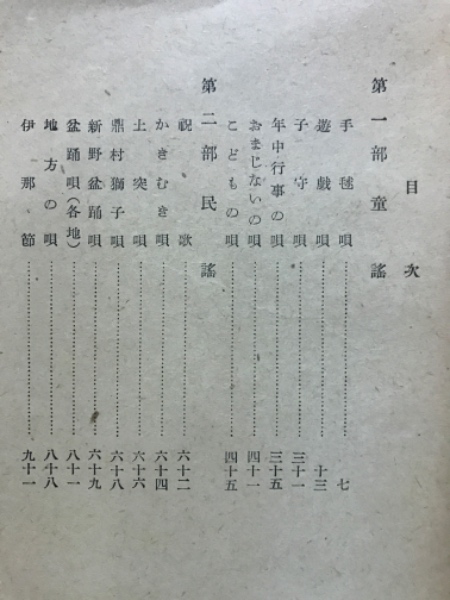 目次
第一部童謠
手毬唄……七
遊戯唄……十三
子守唄……三十一
年中行事の唄……三十五
おまじないの唄……四十一
こどもの唄……四十五
第二部民謠
祝歌……六十二
かきむき唄……六十四
土突唄……六十六
鼎村獅子唄……六十八
新野盆踊唄……六十九
盆踊唄(各地)……八十一
地方の唄……八十八
伊那節……九十一